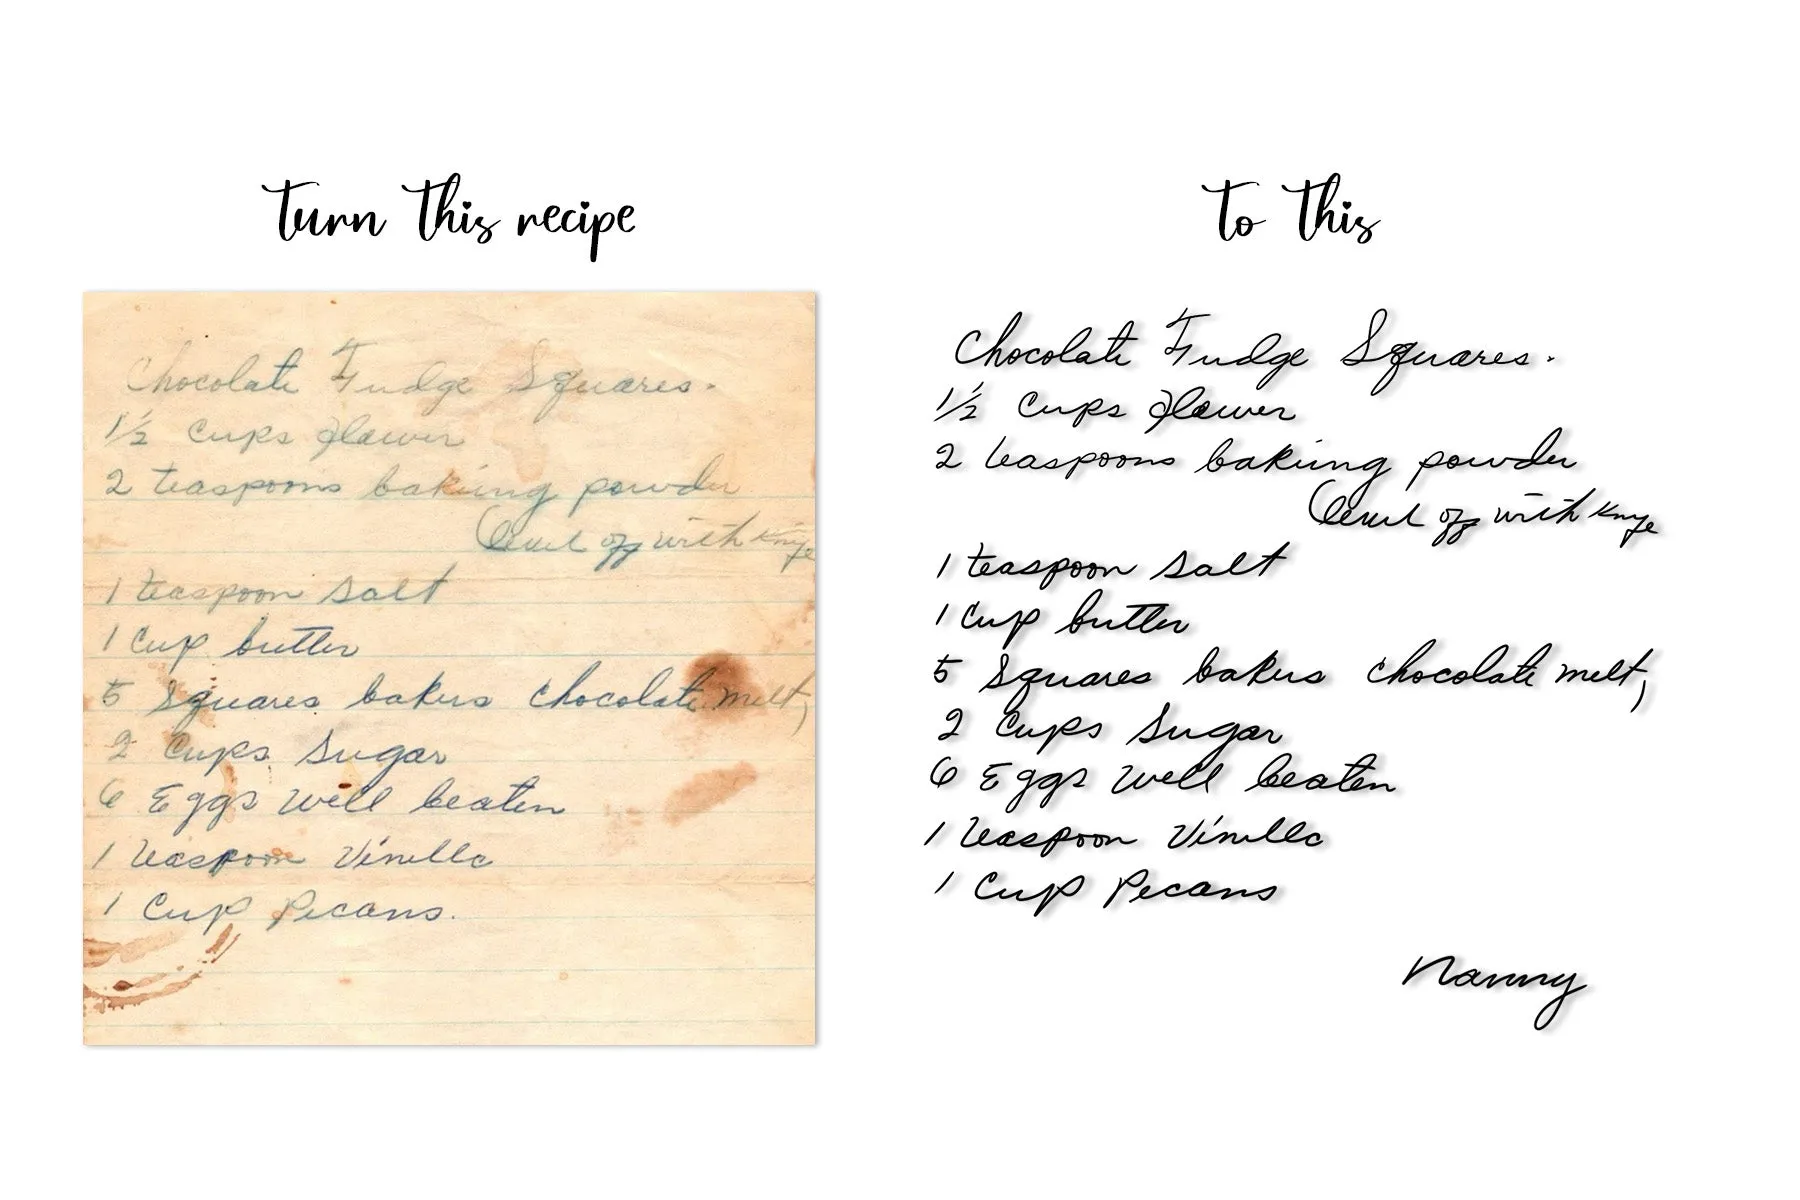 Turn this recipe
Chocolate Fudge Squares.
1½ Cups flower
2 teaspoons bakiing powder
level off with knife
1 teaspoon salt
1 Cup butter
5 Squares bakers chocolate melt,
2 Cups Sugar
6 Eggs well beaten
1 teaspoon Vinella
1 Cup Pecans.
To this
Chocolate Fudge Squares.
1½ Cups flower
2 teaspoons bakiing powder
level off with knife
1 teaspoon salt
1 Cup butter
5 Squares bakers chocolate melt,
2 Cups Sugar
6 Eggs well beaten
1 teaspoon Vinella
1 Cup Pecans
Nanny